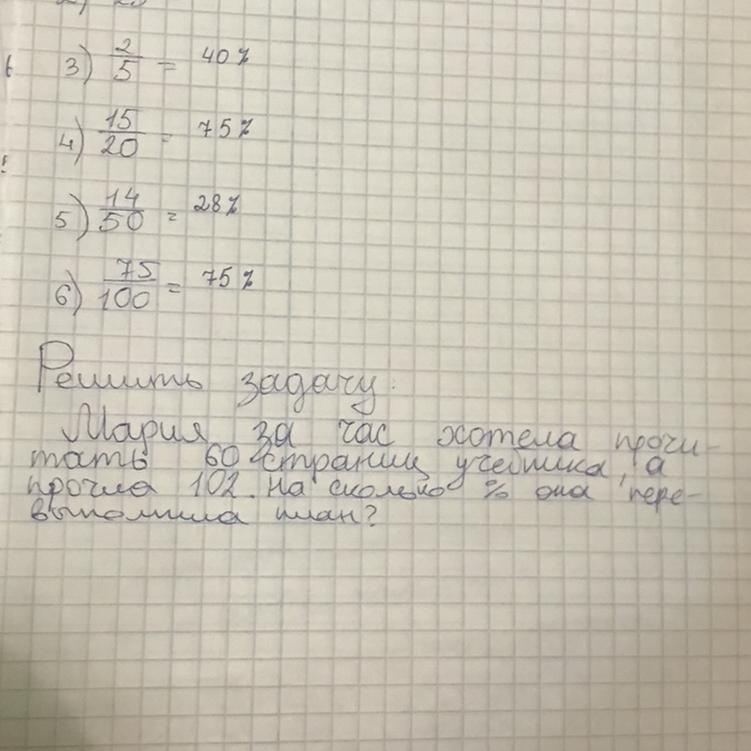 3) 2/5 = 40%
4) 15/20 = 75%
5) 14/50 = 28%
6) 75/100 = 75%
Решить задачу:
Мария за час хотела прочи-
тать 60 страниц учебника, а
прочла 102. На сколько % она пере-
выполнила план?